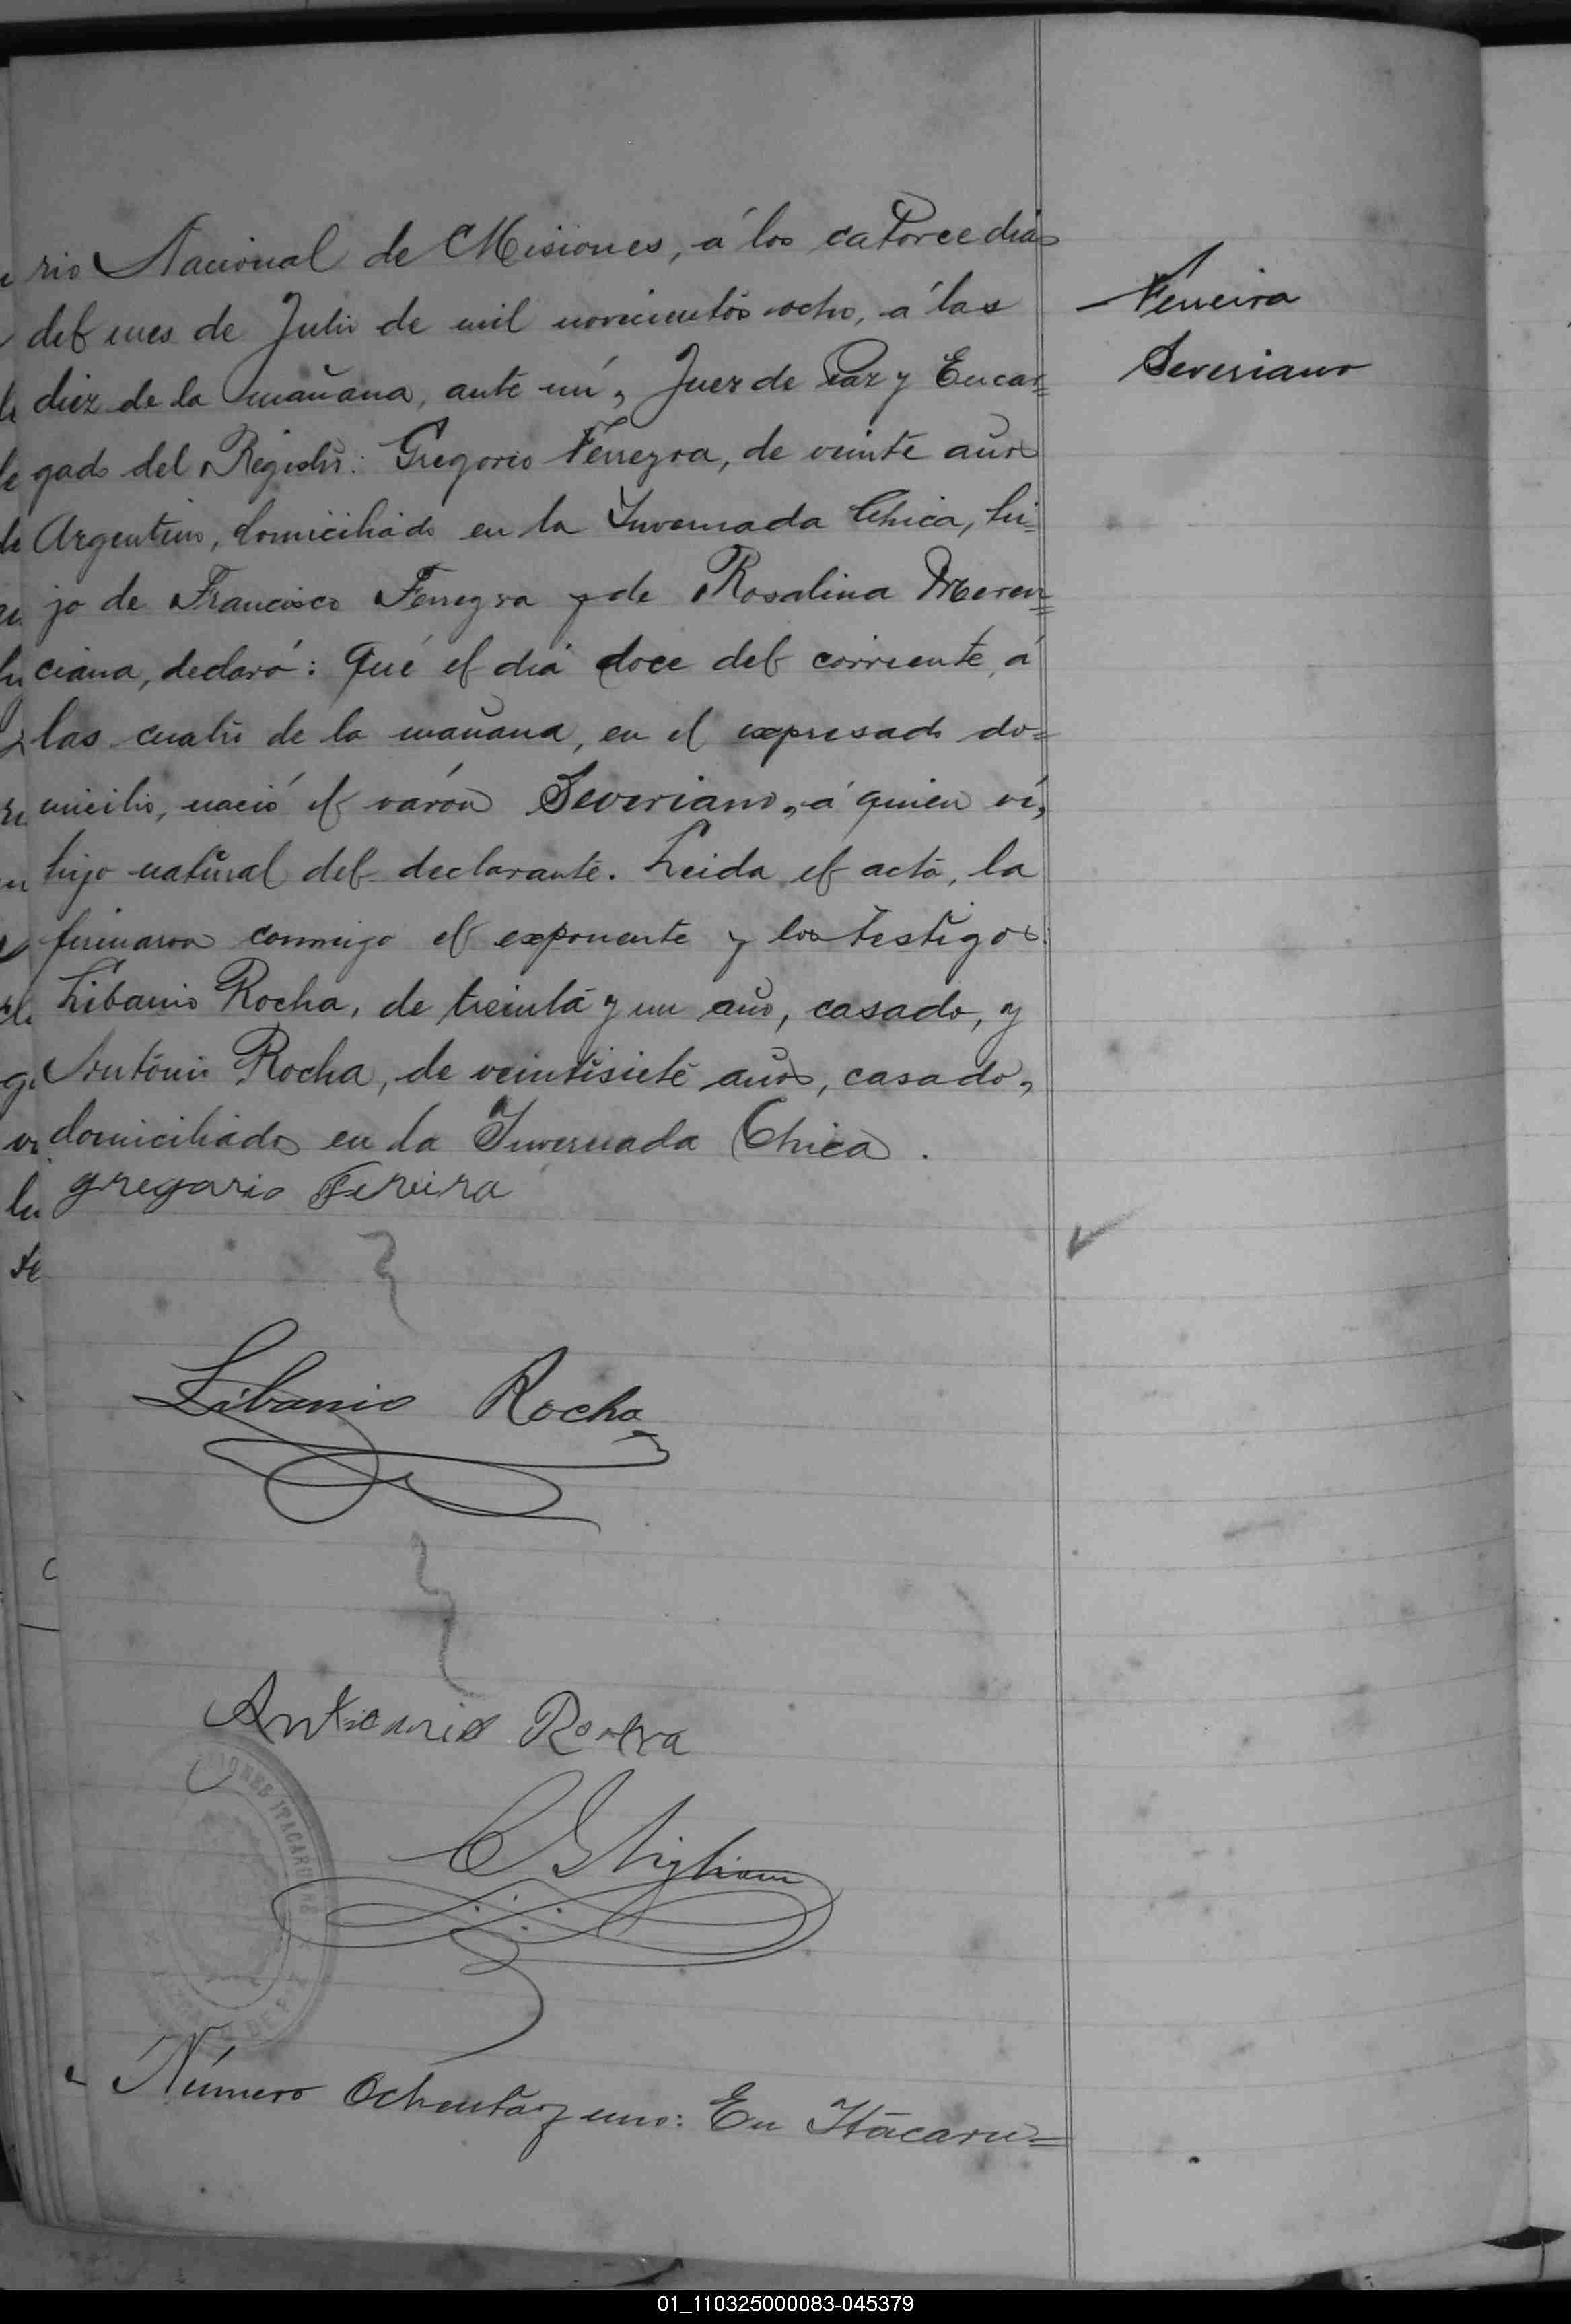 rio Nacional de Misiones, á los catorce dias
del mes de Julio de mil novecientos ocho, á las
diez de la mañana, ante mí, Juez de Paz y Encar=
gado del Registro: Gregorio Ferreyra, de veinte años
Argentino, domiciliado en la Invernada Chica, hi=
jo de Francisco Ferreyra y de Rosalina Meren=
ciana, declaró: Qué el dia doce del corriente, á
las cuatro de la mañana, en el expresado do=
micilio, nació el varón Severiano, á quien ví,
hijo natural del declarante. Leida el acta, la
firmaron conmigo el exponente y los testigos:
Libanio Rocha, de treinta y un año, casado, y
Antonio Rocha, de veintisiete años, casado,
domiciliados en la Invernada Chica.
gregorio Fereira
Ferreira
Severiano
Libanio Rocha
Antonio Rocha
Número Ochenta y uno: En Itacaru=
01_110325000083-045379